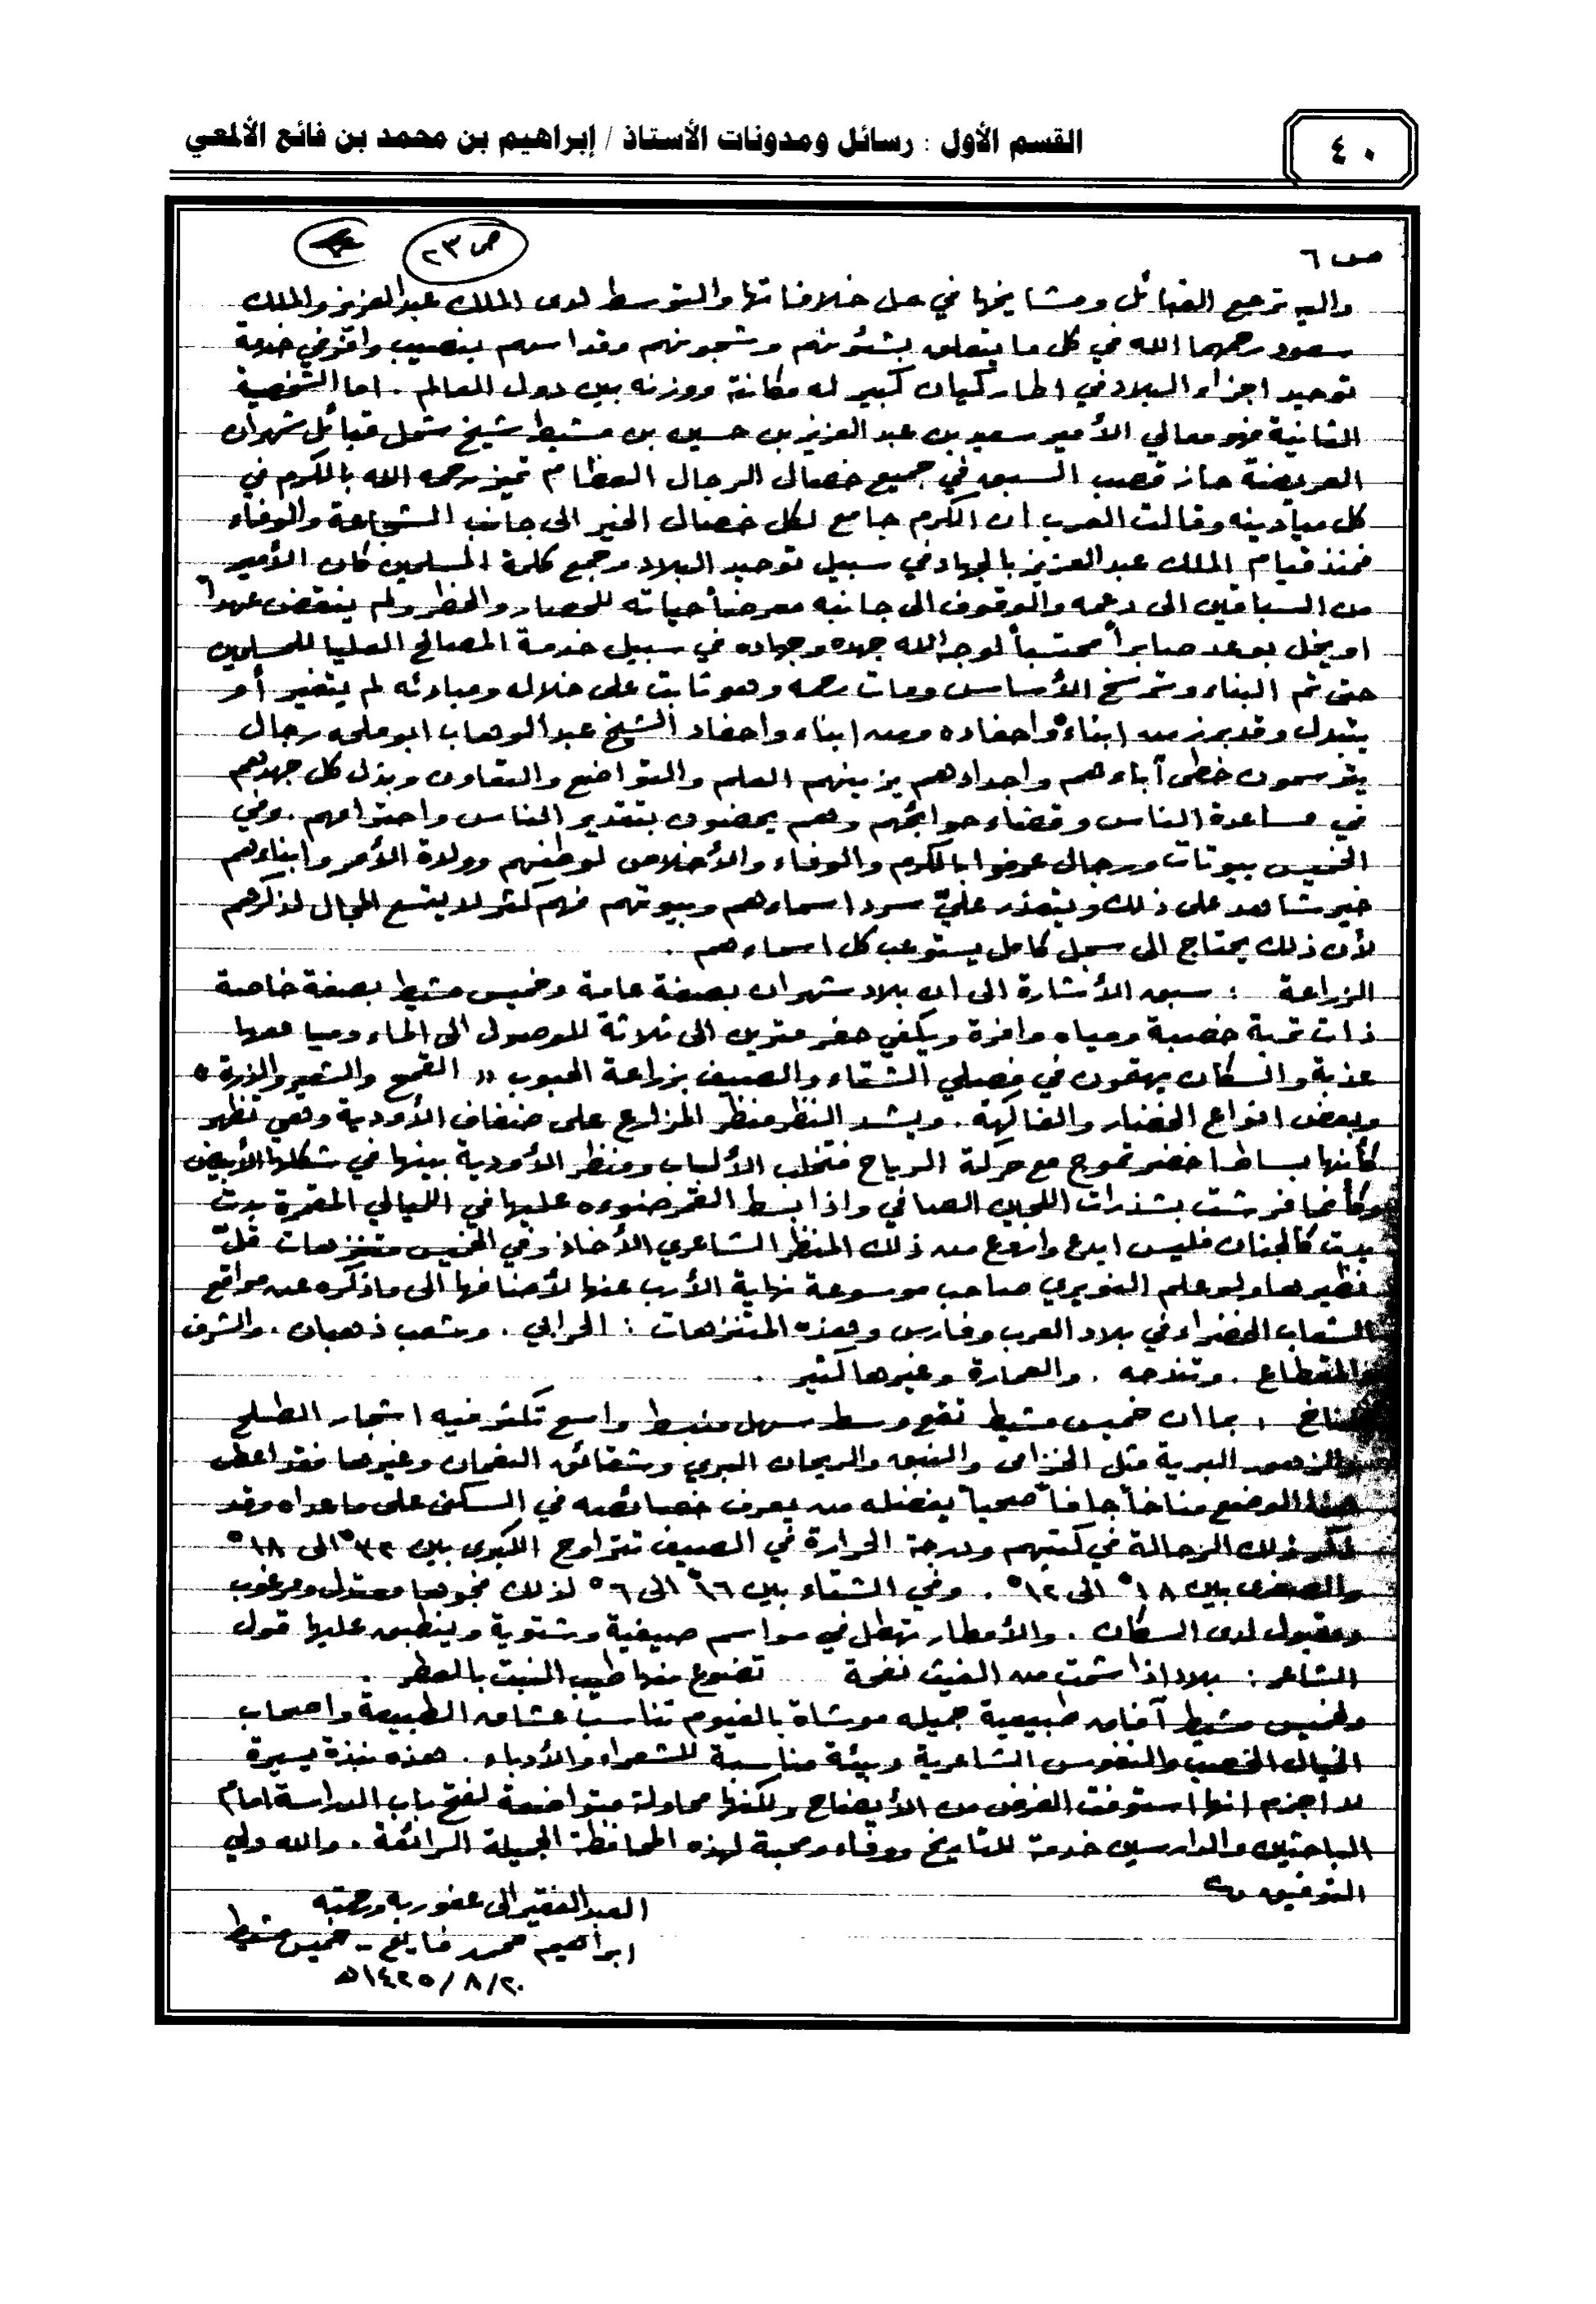 القسم الأول : رسائل ومدونات الأستاذ / إبراهيم بن محمد بن فائع الألمعي
٤٠
ص ٦
ص ٢٣
واليه ترجع القبائل ومشايخها في حل خلافاتها والتوسط لدى الملك عبدالعزيز والملك
سعود رحمهما الله في كل ما يتعلق بشئونهم وشجونهم وقد اسهم بنصيب وافر في خدمة
توحيد اجزاء البلاد في اطار كيان كبير له مكانة ووزنه بين دول العالم . اما الشخصية
الثانية فهو معالي الأمير سعيد بن عبد العزيز بن حسين بن مشيط شيخ شمل قبائل شهران
العريضة حاز قصب السبق في جميع خصال الرجال العظام تميز رحمه الله بالكرم في
كل ميادينه وقالت العرب ان الكرم جامع لكل خصال الخير الى جانب الشجاعة والوفاء
فمنذ قيام الملك عبدالعزيز بالجهاد في سبيل توحيد البلاد وجمع كلمة المسلمين كان الأمير
من السباقين الى دعمه والوقوف الى جانبه معرضاً حياته للحصار والخطر ولم ينقض عهداً
او يخل بوعد صابراً محتسباً لوجه الله جهده وجهاده في سبيل خدمة المصالح العليا للمسلمين
حتى تم البناء وترسخ الأساس ومات رحمه وهو ثابت على خلاله ومبادئه لم يتغير أو
يتبدل وقد برز من ابناءه واحفاده ومن ابناء واحفاد الشيخ عبدالوهاب ابوملحه رجال
يترسمون خطى آباءهم واجدادهم يزينهم العلم والتواضع والتعاون وبذل كل جهدهم
في مساعدة الناس وقضاء حوائجهم وهم يحضون بتقدير الناس واحترامهم . وفي
الخميس بيوتات ورجال عرفوا بالكرم والوفاء والأخلاص لوطنهم وولاة الأمر وابناءهم
خير شاهد على ذلك ويتعذر عليّ سرد اسماءهم وبيوتهم فهم كثر لا يتسع المجال لذكرهم
لأن ذلك يحتاج الى سجل كامل يستوعب كل اسماءهم .
الزراعة : سبق الأشارة الى ان بلاد شهران بصفة عامة وخميس مشيط بصفة خاصة
ذات تربة خصبة ومياه وافرة ويكفي حفر مترين الى ثلاثة للوصول الى الماء ومياهها
عذبة والسكان يهتمون في فصلي الشتاء والصيف بزراعة الحبوب (( القمح والشعير والذرة ))
وبعض انواع الخضار والفاكهة . ويشد النظر منظر المزارع على ضفاف الأودية وهي تظهر
كأنها بساط اخضر تموج مع حركة الرياح فتخلب الألباب ومنظر الأودية بينها في شكلها الأبيض
وكأنما فرشت بشذرات اللجين الصافي واذا بسط القمر ضوءه عليها في الليالي المقمرة بدت
بدت كالجنان فليس ابدع واروع من ذلك المنظر الشاعري الأخاذ وفي الخميس متنزهات قلّ
نظيرها ولو علم النويري صاحب موسوعة نهاية الأرب عنها لأضافها الى ماذكره عن مواقع
الشعاب الخضراء في بلاد العرب وفارس وهذه المتنزهات : الحرابي . وشعب ذهبان . والشرف
والمقطاع . وتندحه . والعمارة وغيرها كثير .
المناخ : بما ان خميس مشيط تقع وسط سهل منبسط واسع تكثر فيه اشجار الطلح
والزهور البرية مثل الخزامى والنبق والريحان البري وشقائق النعمان وغيرها فقد اعطى
هذا الوضع مناخاً جافاً صحياً يفضله من يعرف خصائصه في السكن على ماعداه وقد
ذكر ذلك الرحالة في كتبهم ودرجة الحرارة في الصيف تتراوح الكبرى بين ٣٢° الى ١٨°
والصغرى بين ١٨° الى ١٢° . وفي الشتاء بين ١٦° الى ٦° لذلك فجوها معتدل ومرغوب
ومقبول لدى السكان . والأمطار تهطل في مواسم صيفية وشتوية وينطبق عليها قول
الشاعر : بلاد اذا شمت من الغيث نفحة تضوع منها طيب النبت بالعطر .
ولخميس مشيط آفاق طبيعية جميله موشاة بالغيوم تناسب عشاق الطبيعة واصحاب
الخيال الخصب والنفوس الشاعرية وبيئة مناسبة للشعراء والأدباء . هذه نبذة يسيرة
لا اجزم انها استوفت الغرض من الأيضاح ولكنها محاولة متواضعة لفتح باب الدراسة امام
الباحثين والدارسين خدمة للتاريخ ووفاء ومحبة لهذه المحافظة الجميلة الرائعة . والله ولي
التوفيق
العبد الفقير الى عفو ربه ورحمته
ابراهيم محمد فايع - خميس مشيط
٢٠/٨/١٤٢٥هـ